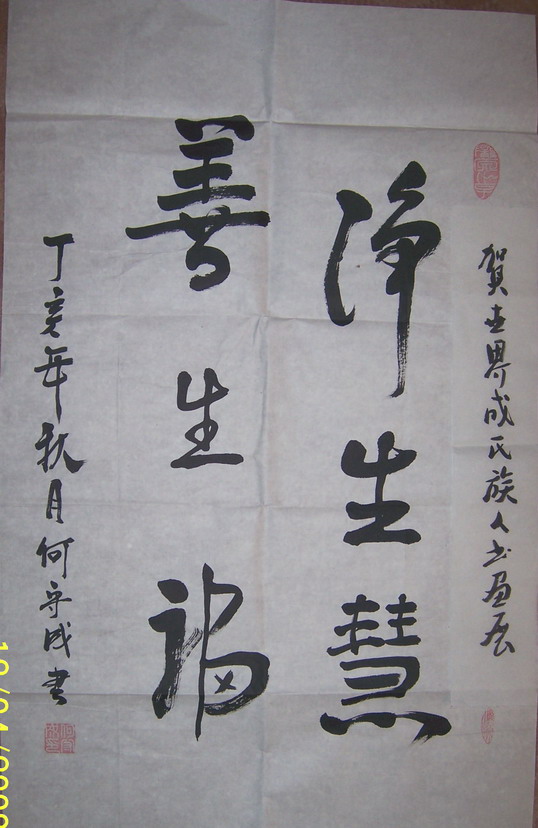 贺世界成氏族人书画展
净生慧
善生福
丁亥年秋月何守成书